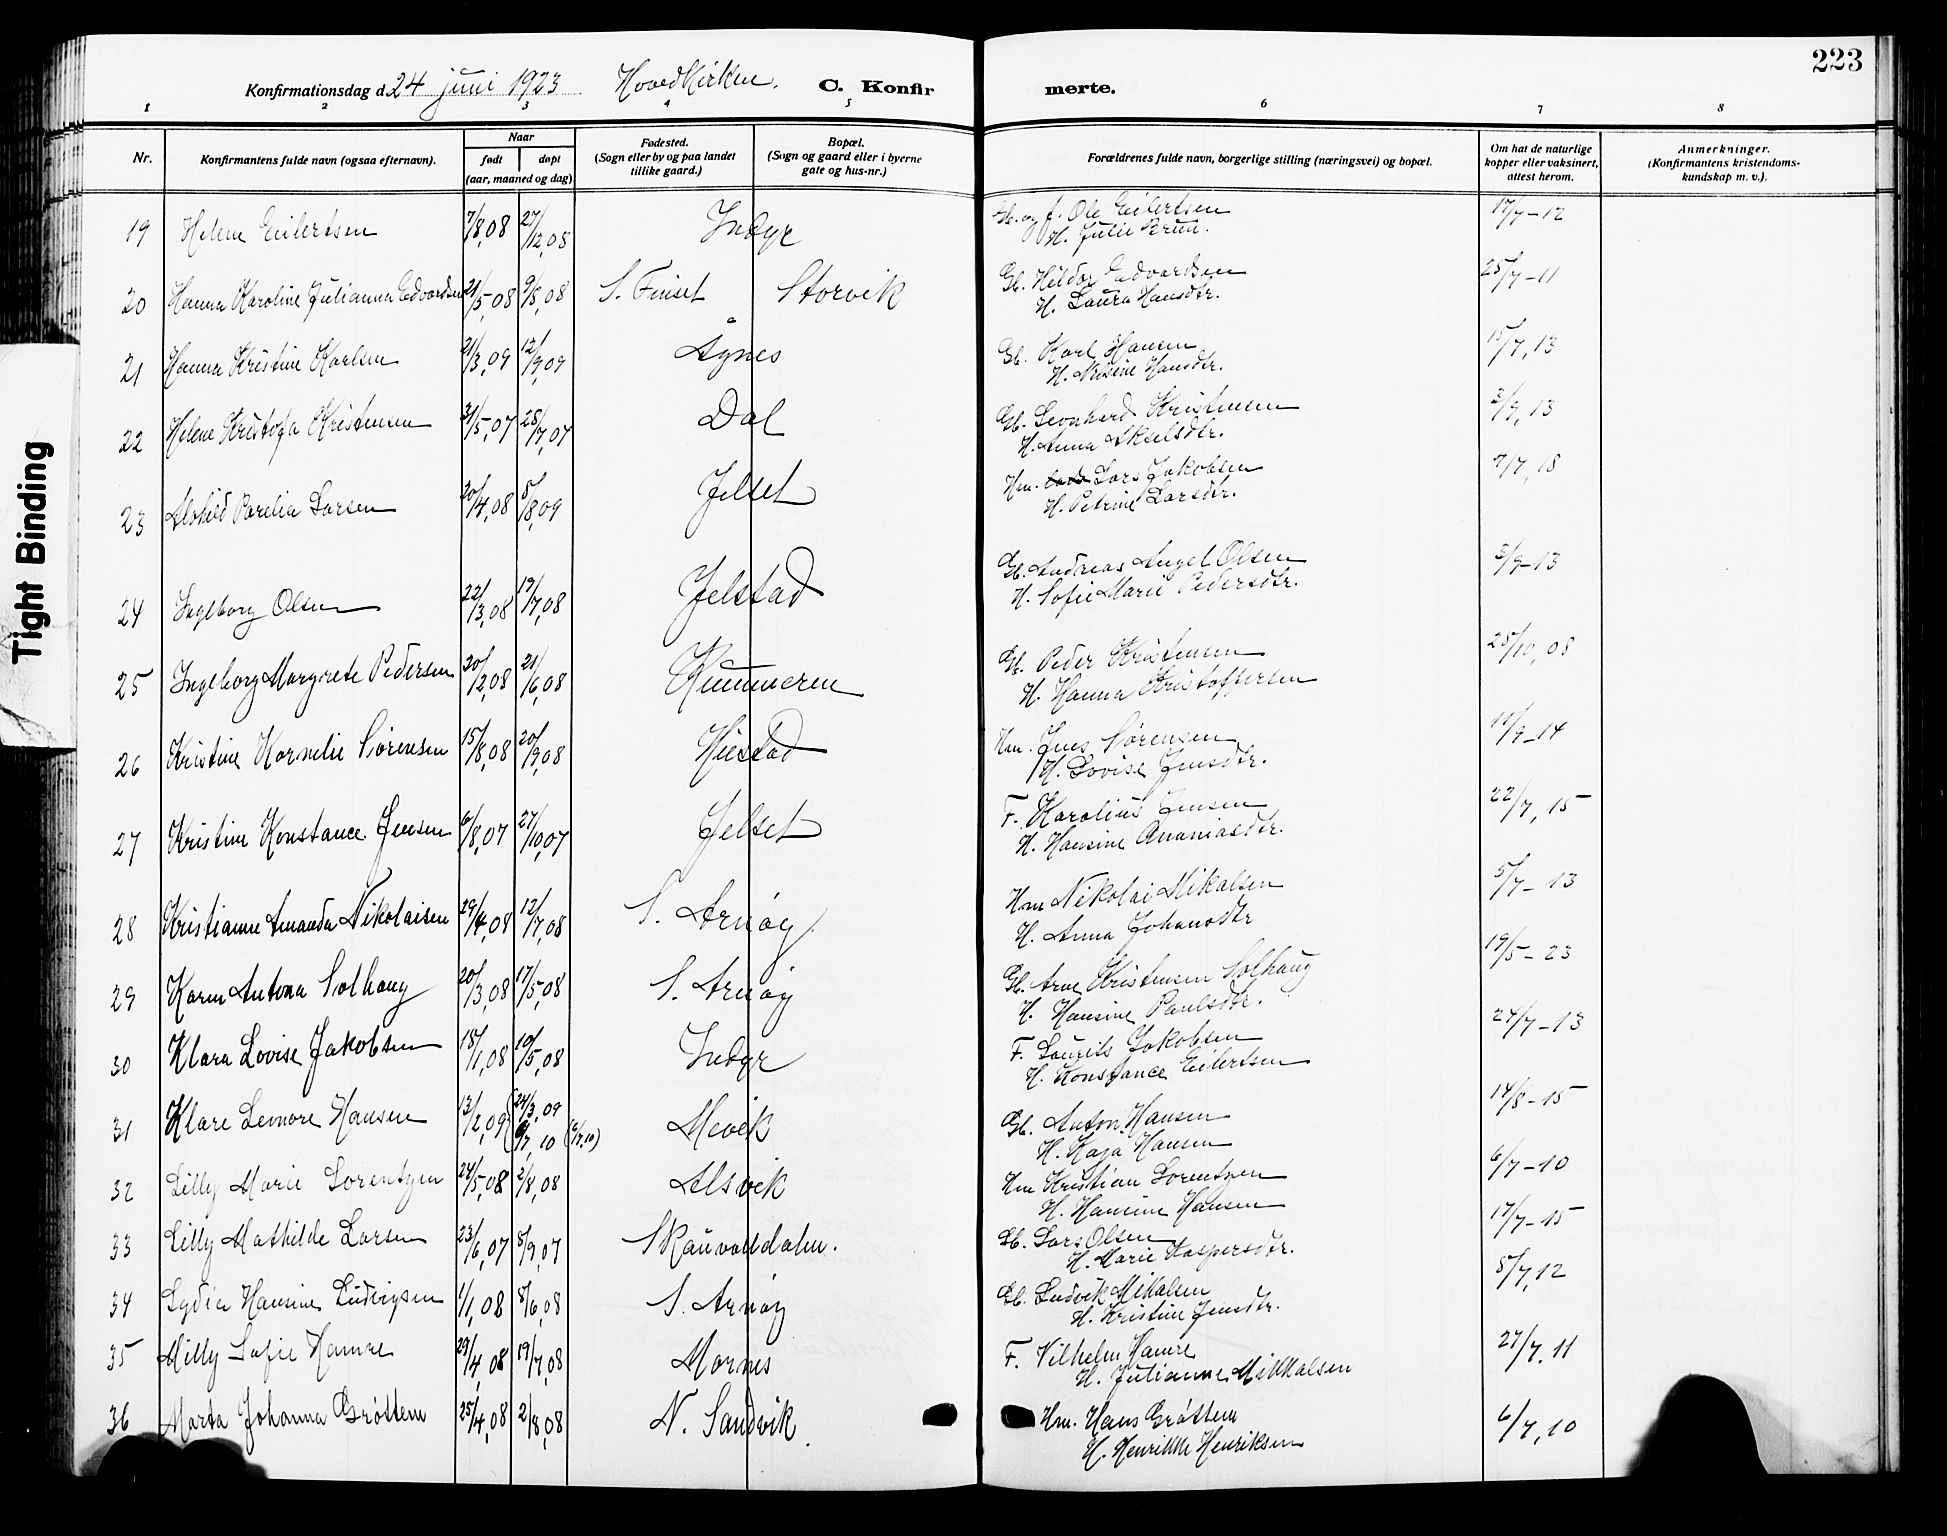 223
Konfirmationsdag d. 24 juni 1923 Hovedkirken. C. Konfirmerte.
1 2 3 4 5 6 7 8
Nr. Konfirmantens fulde navn (ogsaa efternavn). Naar født døpt (aar, maaned og dag) Fødested. (Sogn eller by og paa landet tillike gaard.) Bopæl. (Sogn og gaard eller i byerne gate og hus-nr.) Forældrenes fulde navn, borgerlige stilling (næringsvei) og bopæl. Om hat de naturlige kopper eller vaksinert, attest herom. Anmerkninger. (Konfirmantens kristendoms-kundskap m. v.).
19 Helene Eilertsen 7/8,08 27/12,08 Indyr Gb. og f. Ole Eilertsen 17/7-12
H. Julie Bruu.
20 Hanna Karoline Julianna Edvardsen 21/5,08 9/8,08 S. Finset Storvik Gb. Hildor Edvardsen 25/7-11
H. Laura Hansdtr.
21 Hanna Kristine Karlsen 21/3,09 12/9,09 Ågnes Gb. Karl Hansen 15/7,13
H. Nilsine Hansdtr.
22 Helene Kristofa Kristensen 31/5,07 28/7,07 Dal Gb. Leonhard Kristensen 2/9,13
H. Anna Akselsdtr.
23 Alvhild Parelia Larsen 20/4,08 8/8,09 Jelset Hm. Lars Jakobsen 7/7,18
H. Petrine Larsdtr.
24 Ingeborg Olsen 22/3,08 19/7,08 Jelstad Gb. Andreas Angel Olsen 3/9-13
H. Sofie Marie Pedersdtr.
25 Ingeborg Margrete Pedersen 20/2,08 21/6,08 Kunneren Gb. Peder Kristensen 25/10,08
H. Hanna Kristoffersen
26 Kristine Kornelie Sørensen 15/8,08 20/9,08 Hustad Hm. Jens Sørensen 11/9-14
H. Lovise Jensdtr.
27 Kristine Konstance Jensen 6/8,07 27/10,07 Jelset F. Karolius Jensen 22/7,15
H. Hansine Ananiasdtr.
28 Kristianne Amanda Nikolaisen 29/4,08 12/7,08 S. Arnøy Hm Nikolai Mikalsen 5/7-13
H. Anna Johansdtr
29 Karen Antona Solhaug 20/3,08 17/5,08 S. Arnøy Gb. Arne Kristensen Solhaug 19/5-23
H. Hansine Paulsdtr.
30 Klara Lovise Jakobsen 18/1,08 10/5,08 Indyr F. Laurits Jakobsen 24/7-13
H. Konstance Eilertsen
31 Klara Lenore Hansen 13/2,09 24/3,09 Mevik Gb. Anton Hansen 14/8-15
6/7,10 (6/7,10) H. Kaja Hansen
32 Lilly Marie Lorentzen 24/5,08 2/8,08 Alsvik Hm Kristian Lorentzen 6/7-10
H. Hansine Hansen
33 Lilly Mathilde Larsen 23/6,07 8/9,07 Skauvolldalen. Gb. Lars Olsen 17/7-15
H. Marie Kaspersdtr.
34 Lydia Hansine Ludvigsen 1/1,08 8/6,08 S. Arnøy Gb. Ludvik Mikalsen 8/7,12
H. Kristine Jensdtr.
35 Milly Sofie Hamre 29/4,08 19/7,08 Mornes F. Vilhelm Hamre 27/7.11
H. Julianne Mikkalsen
36 Marta Johanna Grøttem 25/4,08 2/8,08 N. Sandvik Hm. Hans Grøttem 6/7,10
H. Henrikke Henriksen
Tight Binding